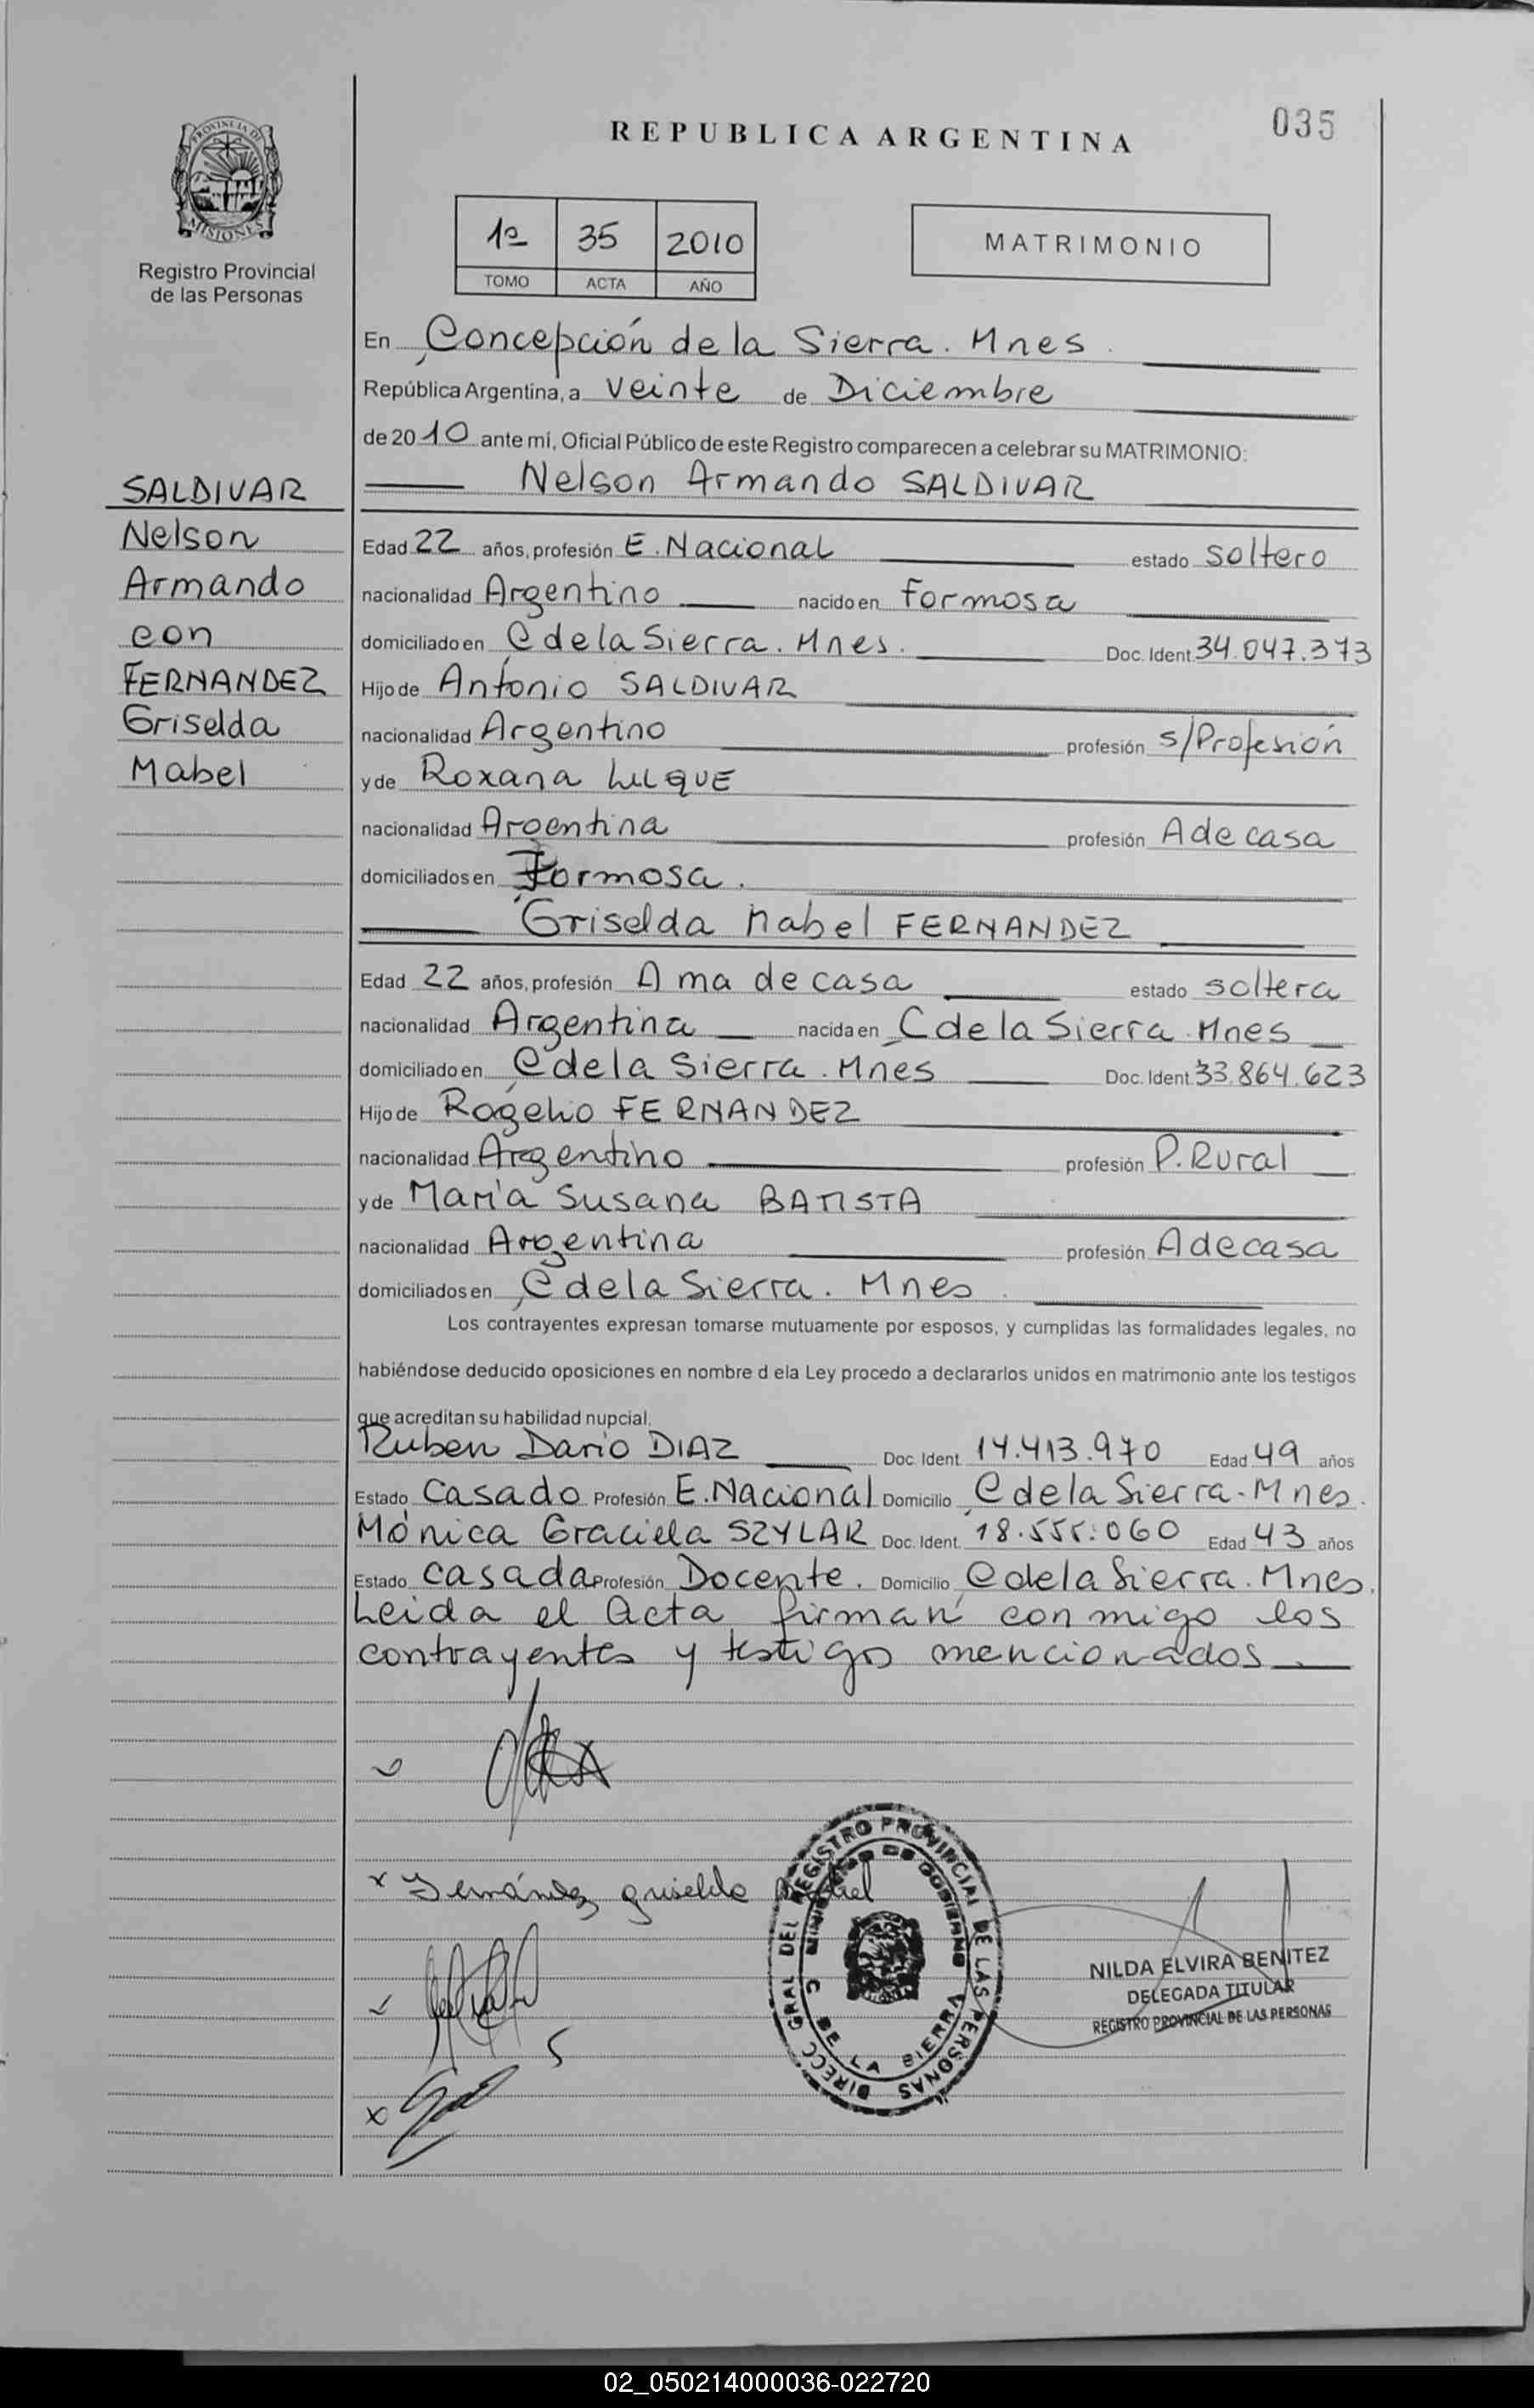 REPUBLICA ARGENTINA
035
PROVINCIA DE
MISIONES
Registro Provincial
de las Personas
1º 35 2010
TOMO ACTA AÑO
MATRIMONIO
En Concepción de la Sierra. Mnes.
República Argentina, a veinte de Diciembre
de 2010 ante mí, Oficial Público de este Registro comparecen a celebrar su MATRIMONIO:
SALDIVAR
Nelson
Armando
con
FERNANDEZ
Griselda
Mabel
Nelson Armando SALDIVAR
Edad 22 años, profesión E. Nacional estado soltero
nacionalidad Argentino nacido en Formosa
domiciliado en C de la Sierra. Mnes. Doc. Ident. 34.047.373
Hijo de Antonio SALDIVAR
nacionalidad Argentino profesión s/Profesión
y de Roxana LUQUE
nacionalidad Argentina profesión A de casa
domiciliados en Formosa.
Griselda Mabel FERNANDEZ
Edad 22 años, profesión Ama de casa estado soltera
nacionalidad Argentina nacida en C de la Sierra. Mnes
domiciliado en C de la Sierra. Mnes Doc. Ident. 33.864.623
Hijo de Rogelio FERNANDEZ
nacionalidad Argentino profesión P. Rural
y de María Susana BATISTA
nacionalidad Argentina profesión A de casa
domiciliados en C de la Sierra. Mnes
Los contrayentes expresan tomarse mutuamente por esposos, y cumplidas las formalidades legales, no
habiéndose deducido oposiciones en nombre d ela Ley procedo a declararlos unidos en matrimonio ante los testigos
que acreditan su habilidad nupcial.
Ruben Dario DIAZ Doc. Ident. 14.413.970 Edad 49 años
Estado Casado Profesión E. Nacional Domicilio C de la Sierra. Mnes.
Mónica Graciela SZYLAK Doc. Ident. 18.555.060 Edad 43 años
Estado Casada Profesión Docente. Domicilio C de la Sierra. Mnes.
Leida el Acta firman conmigo los
contrayentes y testigos mencionados.
x Fernández griselda Mabel
DIRECC GRAL DEL REGISTRO PROVINCIAL DE LAS PERSONAS
MINISTERIO DE GOBIERNO
C DE LA SIERRA
NILDA ELVIRA BENITEZ
DELEGADA TITULAR
REGISTRO PROVINCIAL DE LAS PERSONAS
02_050214000036-022720